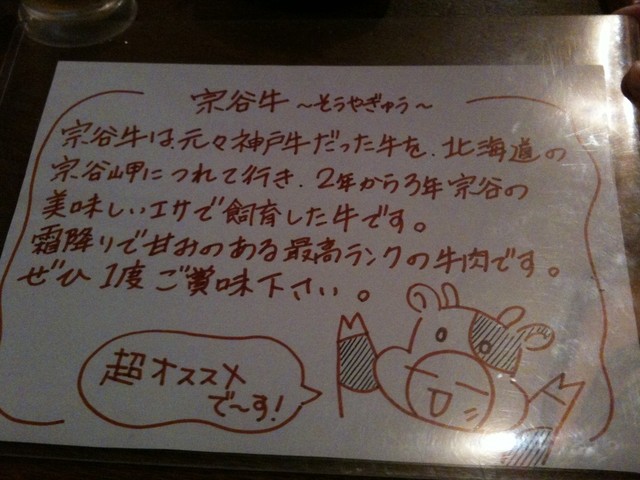 宗谷牛 ～そうやぎゅう～
宗谷牛は元々神戸牛だった牛を、北海道の
宗谷岬につれて行き、2年から3年宗谷の
美味しいエサで飼育した牛です。
霜降りで甘みのある最高ランクの牛肉です。
ぜひ1度ご賞味下さい。
超オススメ
で～す!